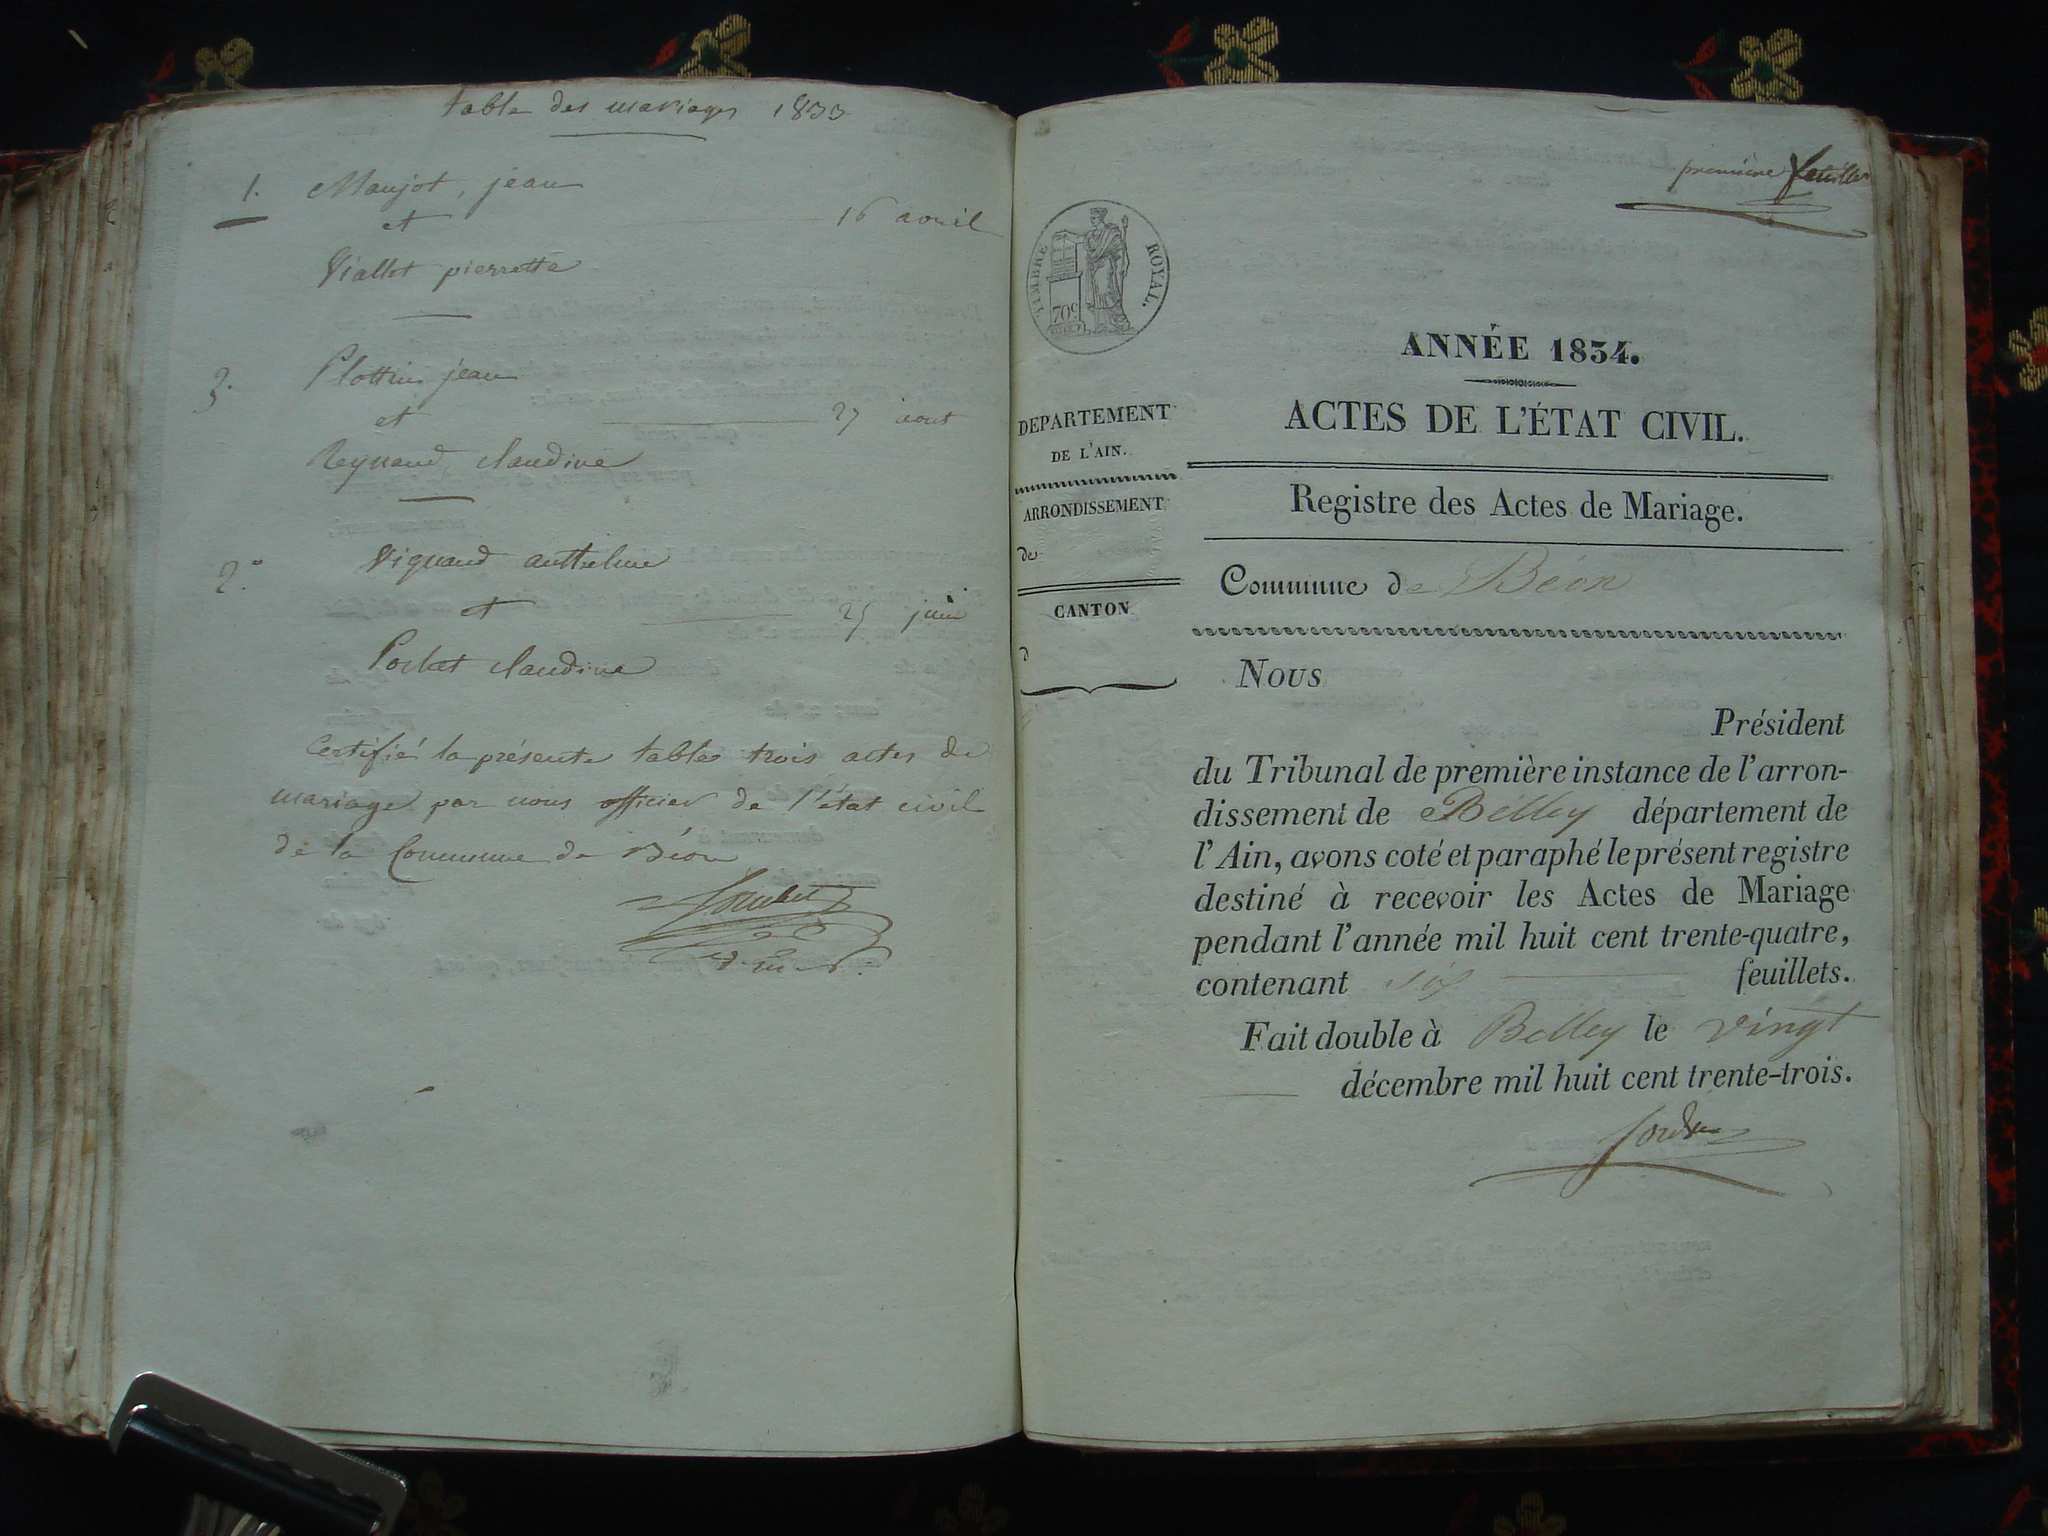 table des mariages 1833
1. Maujot, jean
et 16 avril
Viallet pierrette
3. Plottin jean
et 27 aout
Reynaud claudine
2.° Vignand anthelme
et 25 juin
Pochet claudine
Certifié la présente table trois actes de
mariage par nous officier de l'état civil
de la Commune de Béon
première feuillet
TIMBRE ROYAL.
70c
ANNÉE 1834.
ACTES DE L'ÉTAT CIVIL.
Registre des Actes de Mariage.
Commune de Béon
DEPARTEMENT
DE L'AIN.
ARRONDISSEMENT
de
CANTON
d
Nous
Président
du Tribunal de première instance de l'arron-
dissement de Belley département de
l'Ain, avons coté et paraphé le présent registre
destiné à recevoir les Actes de Mariage
pendant l'année mil huit cent trente-quatre,
contenant six feuillets.
Fait double à Belley le vingt
décembre mil huit cent trente-trois.